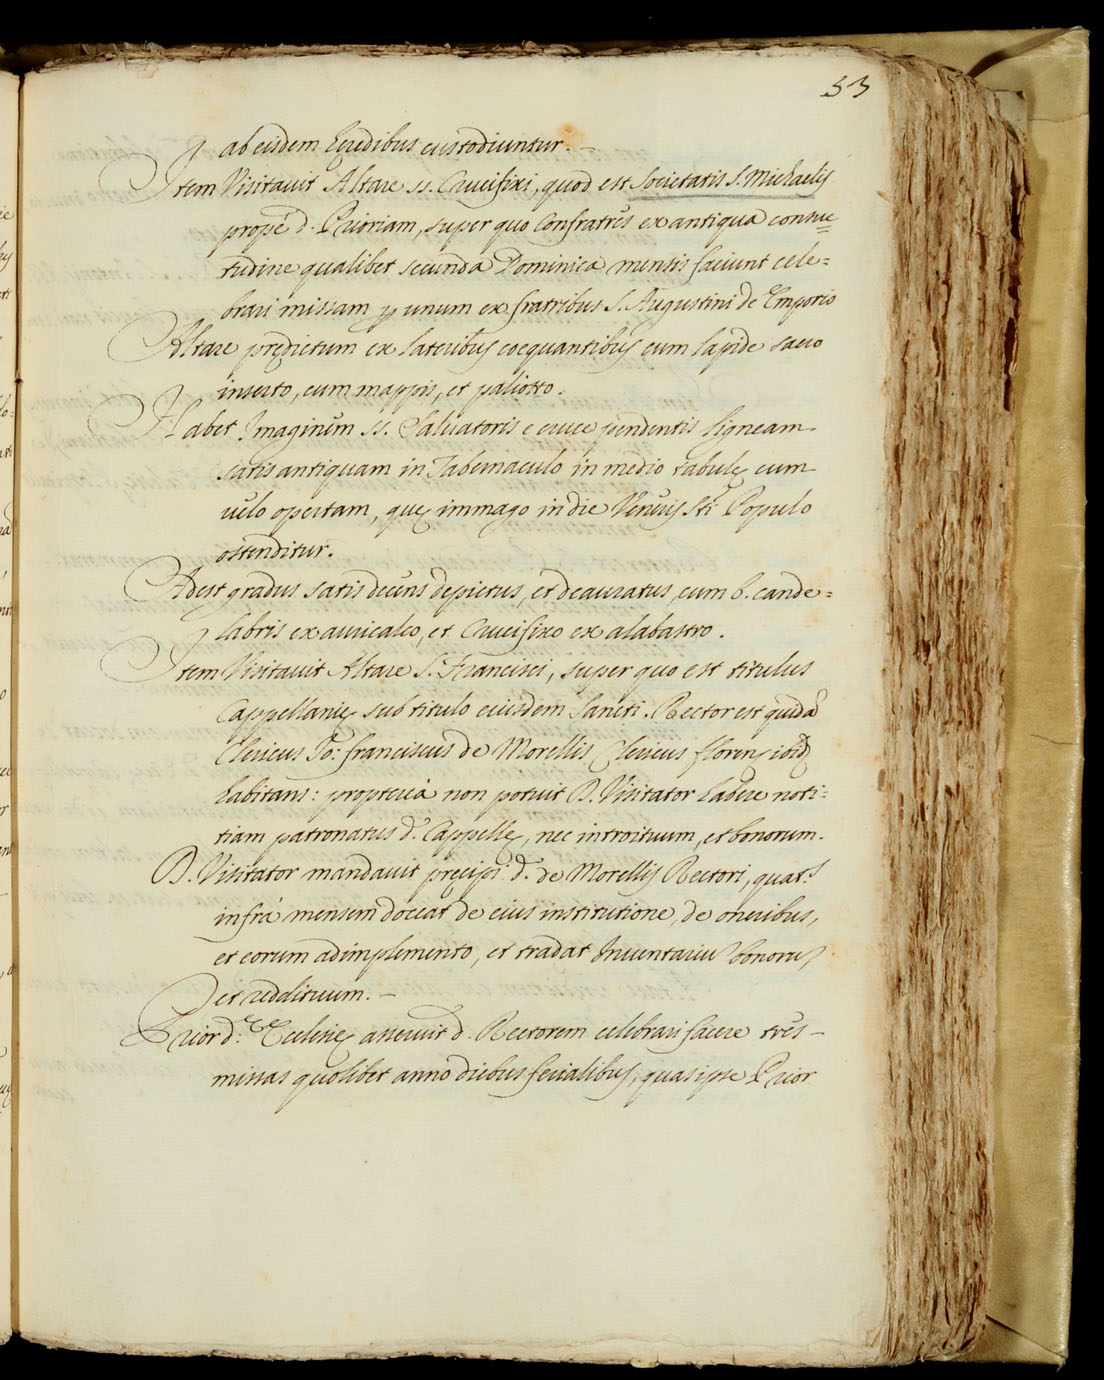 53
ab eisdem Heredibus custodiuntur. -
Item Visitauit Altare SS. Crucifixi, quod est Societatis S. Michaelis
propè d. Prioriam, super quo Confratres ex antiqua consue=
tudine qualibet secunda Dominica mensis faciunt cele=
brari missam p unum ex fratribus S. Augustini de Emporio
Altare predictum ex lateribus coequantibus cum lapide sacro
inserto, cum mappis, et paliotto.
Habet Imaginem SS. Saluatoris e cruce pendentis ligneam
satis antiquam in Tabernaculo in medio tabulę cum
uelo opertam, quę immago in die Veneris Sti Populo
ostenditur.
Adest gradus satis decens depictus, et deauratus, cum 6. cande=
labris ex auricalco, et Crucifixo ex alabastro.
Item Visitauit Altare S. Francisci, super quo est titulus
Cappellanię sub titulo eiusdem Sancti. Rector est quida
Clericus Jo: franciscus de Morellis Clericus floren ibid
habitans: proptereà non potuit D. Visitator habere noti=
tiam patronatus d. Cappellę, nec introituum, et bonorum.
D. Visitator mandauit precipi d. de Morellis Rectori, quats
infrà mensem doceat de eius institutione, de oneribus,
et eorum adimplemento, et tradat Inuentariu bonoru,
et reddituum. -
Prior d. Ecclesię asseruit d. Rectorem celebrari facere tres -
missas quolibet anno diebus ferialibus, quas ipse Prior